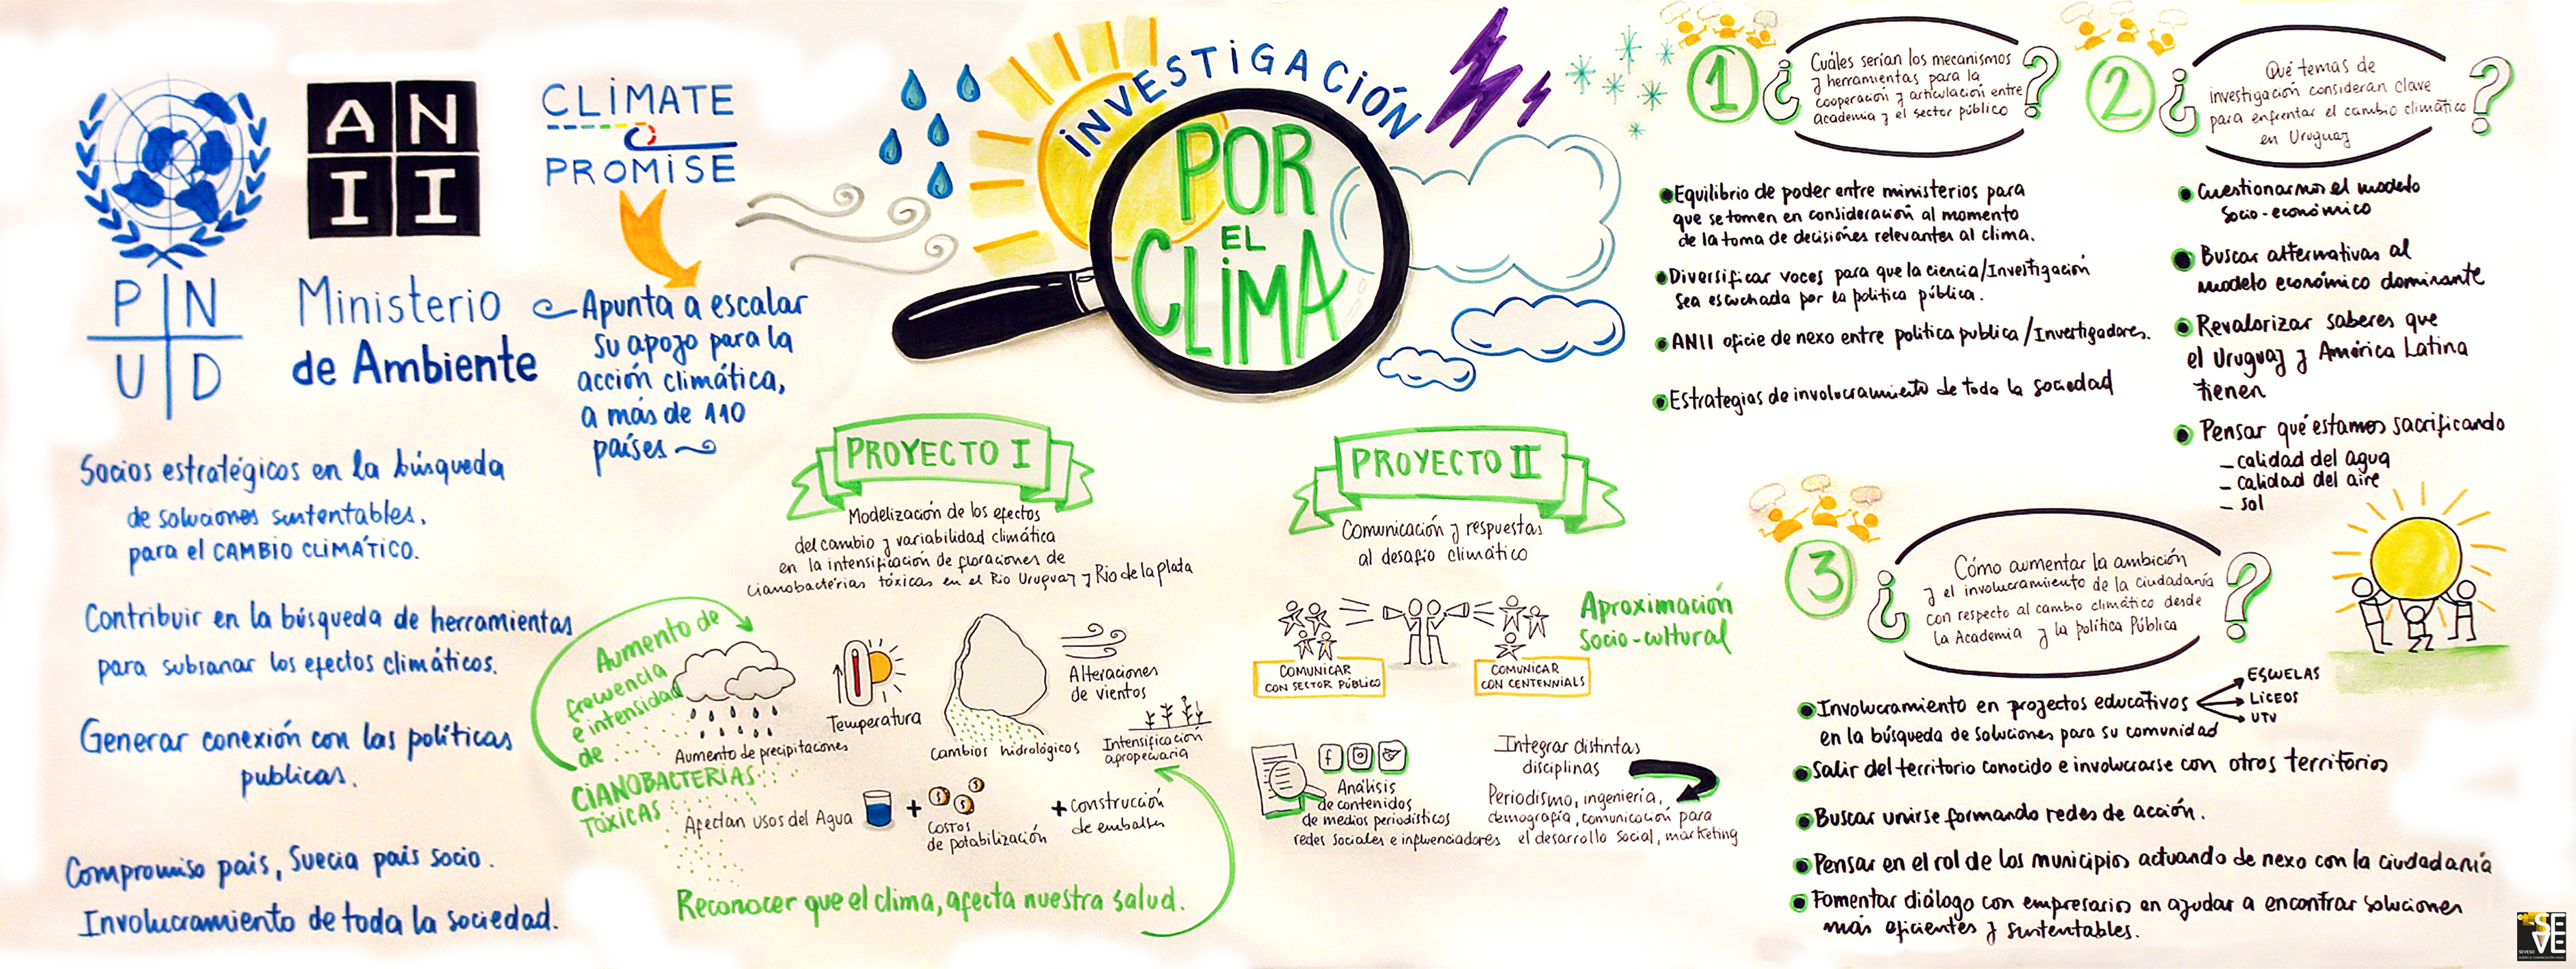 A N
I I
CLIMATE
PROMISE
P N
U D
Ministerio
de Ambiente
Apunta a escalar
su apoyo para la
acción climática,
a más de 110
países
Socios estratégicos en la búsqueda
de soluciones sustentables,
para el CAMBIO CLIMÁTICO.
Contribuir en la búsqueda de herramientas
para subsanar los efectos climáticos.
Generar conexión con las políticas
publicas.
Compromiso país, Suecia país socio.
Involucramiento de toda la sociedad.
INVESTIGACIÓN
POR
EL
CLIMA
PROYECTO I
Modelización de los efectos
del cambio y variabilidad climática
en la intensificación de floraciones de
cianobacterias tóxicas en el Rio Uruguay y Rio de la plata
Aumento de
frecuencia
e intensidad
de
CIANOBACTERIAS
TÓXICAS
Aumento de precipitaciones
Temperatura
Cambios hidrológicos
Alteraciones
de vientos
Intensificación
agropecuaria
Afectan usos del Agua
+
costos
de potabilización
+ construcción
de embalses
Reconocer que el clima, afecta nuestra salud.
PROYECTO II
Comunicación y respuestas
al desafío climático
COMUNICAR
CON SECTOR PÚBLICO
COMUNICAR
CON CENTENNIALS
Aproximación
socio-cultural
Análisis
de contenidos
de medios periodísticos
redes sociales e influenciadores
Integrar distintas
disciplinas
Periodismo, ingeniería,
demografía, comunicación para
el desarrollo social, marketing
1
¿Cuáles serían los mecanismos
y herramientas para la
cooperación y articulación entre
academia y el sector público?
Equilibrio de poder entre ministerios para
que se tomen en consideración al momento
de la toma de decisiones relevantes al clima.
Diversificar voces para que la ciencia/Investigación
sea escuchada por la política pública.
ANII oficie de nexo entre política publica/Investigadores.
Estrategias de involucramiento de toda la sociedad
2
¿Qué temas de
investigación consideran clave
para enfrentar el cambio climático
en Uruguay?
Cuestionarnos el modelo
socio-económico
Buscar alternativas al
modelo económico dominante
Revalorizar saberes que
el Uruguay y América Latina
tienen
Pensar qué estamos sacrificando
- calidad del agua
- calidad del aire
- sol
3
¿Cómo aumentar la ambición
y el involucramiento de la ciudadanía
con respecto al cambio climático desde
la Academia y la política Pública?
Involucramiento en proyectos educativos
ESCUELAS
LICEOS
UTU
en la búsqueda de soluciones para su comunidad
Salir del territorio conocido e involucrarse con otros territorios
Buscar unirse formando redes de acción.
Pensar en el rol de los municipios actuando de nexo con la ciudadanía
Fomentar diálogo con empresarios en ayudar a encontrar soluciones
más eficientes y sustentables.
SE
VE